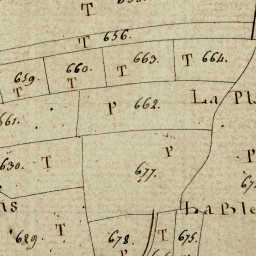 T
T 656.
659. 660. 663. 664.
T T T T
P 662. La Pl
661.
630. T P P
677.
La Ble
689. T 678. T 675.
P